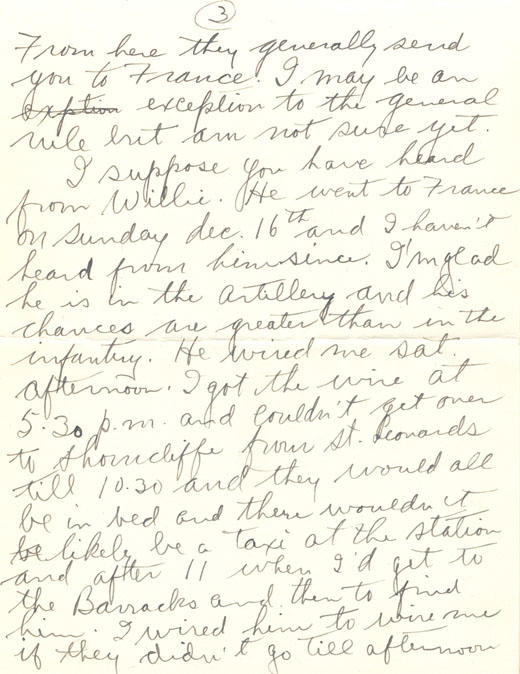 3
From here they generally send
you to France. I may be an
exption exception to the general
rule but am not sure yet.
I suppose you have heard
from Willie. He went to France
on Sunday dec. 16th and I haven't
heard from him since. I'm glad
he is in the artillery and his
chances are greater than in the
infantry. He wired me sat.
afternoon. I got the wire at
5.30 p.m. and couldn't get over
to Shorncliffe from St. Leonards
till 10.30 and they would all
be in bed and there wouldn't
be likely be a taxi at the station
and after 11 when I'd get to
the Barracks and then to find
him. I wired him to wire me
if they didn't go till afternoon